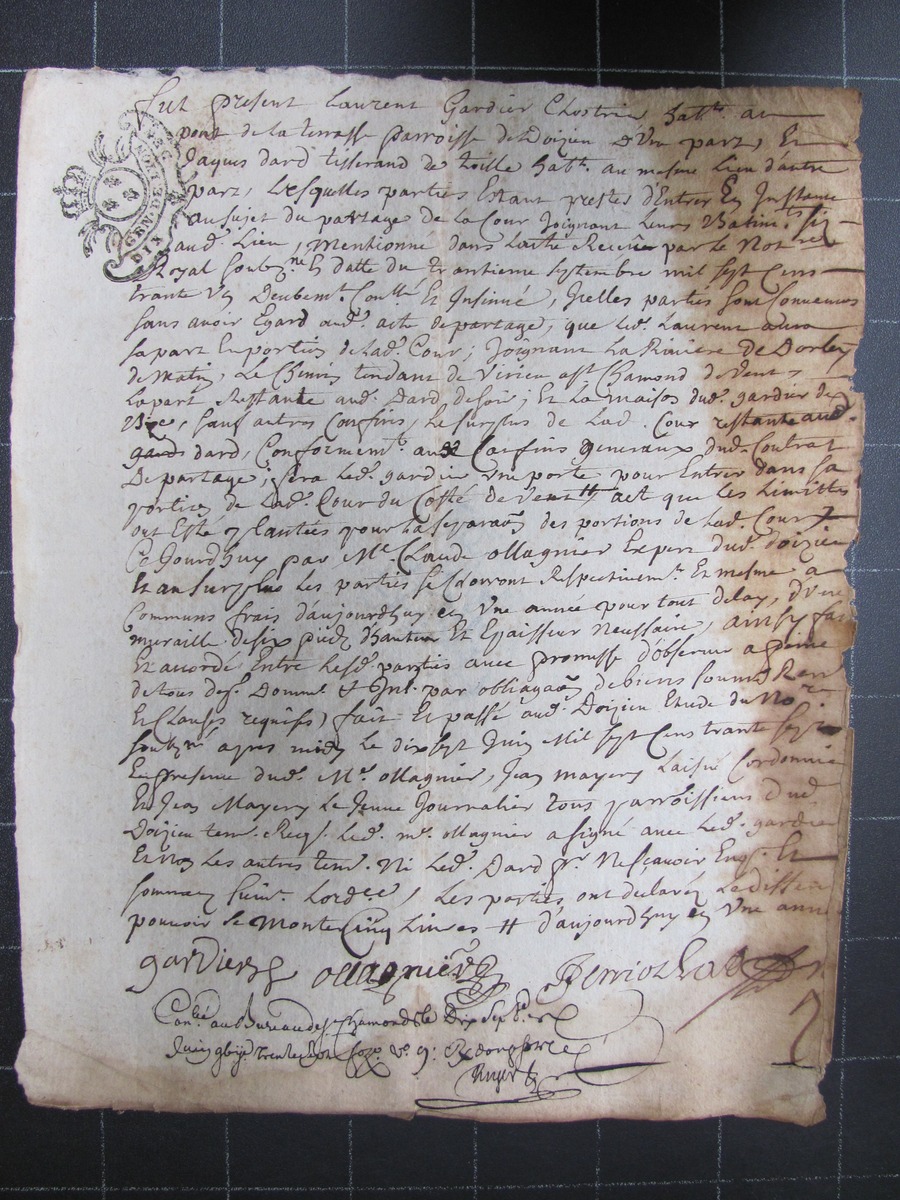 GEN. DE LION
DIX
Fut present Laurent Gardier Clostrier habtt. au
pont de la terrasse parroisse de Doizieu D'Une part, Et
Jaques dard tisserand de toille habt. au mesme Lieu d'autre
part, Lesquelles parties Estant prestes d'Entrer En Instance
au sujet du partage de la Cour Joignant Leurs Batimts. siz
aud. Lieu, mentionné dans L'acte Receu par le Notre.
Royal soubz.né En datte du trantieme septembre mil sept Cens
trante Un Deubemt. Conllé Et Insinué, Icelles parties sont Convenues
sans avoir Egard aud. acte de partage, que led. Laurent aura
sa part En portion de Lad. Cour, Joignant La Riviere de Dorley
de matin, Le Chemin tendant de Virieu a st. Chamond de Vent
La part Restante aud. Dard de soir, Et La maison dud. gardier de
Bize, sauf autres Confins, Le surplus de Lad. Cour restante aud.
dard, Conformemt. aux Confins generaux dud. Contrat
De partage, fera Led. gardier Une porte pour Entrer dans sa
portion de Lad. Cour du Costé de Vent # act que les Limittes
ont Esté plantées pour la separaon des portions de Lad. Cour
Ce Jourdhuy par Me. Claude ollagnier Expert dud. doizieu
Et au surplus Les parties se Clorront Respectivemt. Et mesme a
Communs frais d'aujourdhuy en Une année pour tout delay, d'Une
muraille de six pieds d'hauteur Et Epaisseur Necessaire, ainsy fait
Et accordé Entre Lesd. parties avec promesse d'observer a peine
de tous desp. Domm. & Int. par obligaon de biens soumis. Ren
Et Clauses requises, fait Et passé aud. Doizieu Etude du Nore.
soubzné apres midy le dixsept Juin Mil sept Cens trante sept
En presence dud. Me. ollagnier, Jean mayery Laisné Cordonnier
Et Jean Mayery Le Jeune Journalier tous parroissiens dud.
Doizieu tem. Reqs. Led. me. ollagnier a signé avec Led. gardier
Et Non Les autres tem. Ni Led. Dard pr. Ne sçavoir Enq. Et
sommés suivt. Lordce, Les parties ont declaré Le different
pouvoir se Monter Cinq Livres # d'aujourdhuy en Une année
gardier ollagnier
Conlé au Bureau de st. chamond Le Dix sept e
Juin